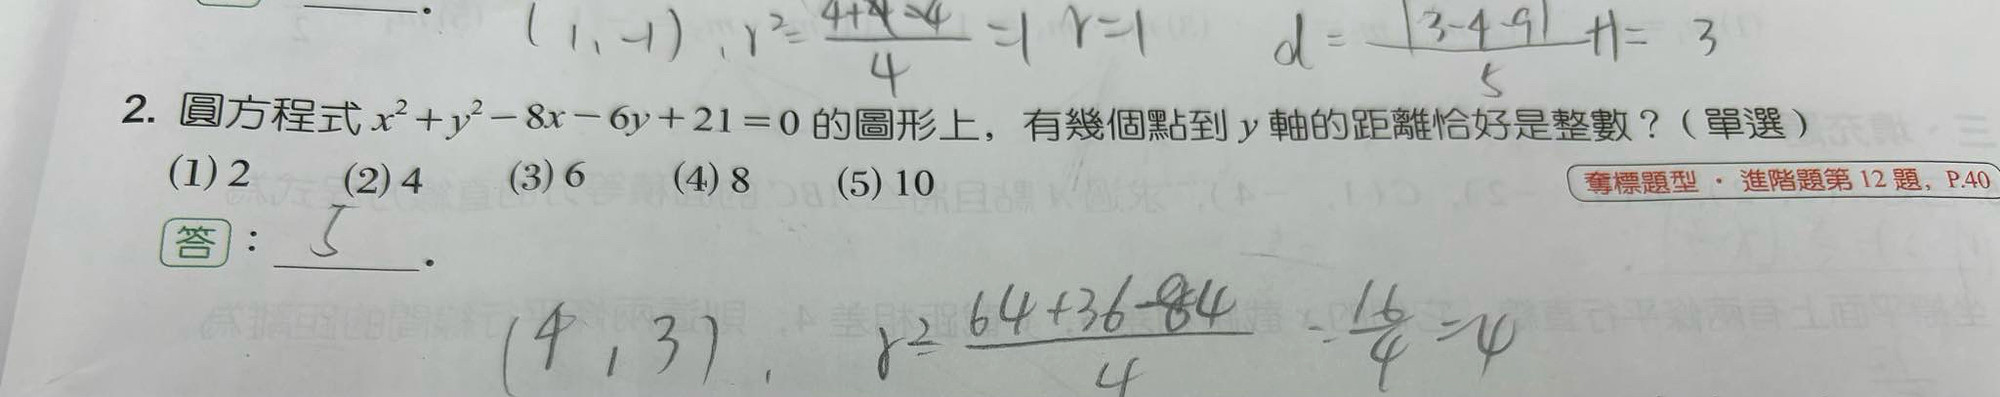 (1, -1), r²= 4+4-4/4 =1 r=1 d = |3-4-9|/5 +1= 3
2. 圓方程式 x²+y²-8x-6y+21=0 的圖形上，有幾個點到 y 軸的距離恰好是整數？（單選）
(1) 2 (2) 4 (3) 6 (4) 8 (5) 10
奪標題型・進階題第 12 題，P.40
答： 5 .
(4, 3), r²= 64+36-84/4 = 16/4 =4